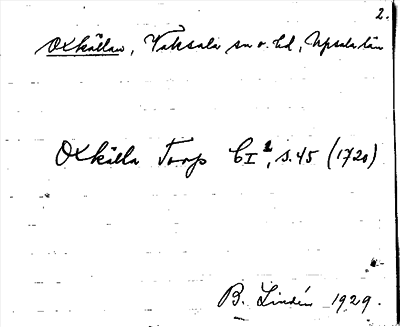 2.
Oxkällan, Vaksala sn o. hd, Upsala län
Oxkälla Torp CI², s. 45 (1720)
B. Lindén 1929.